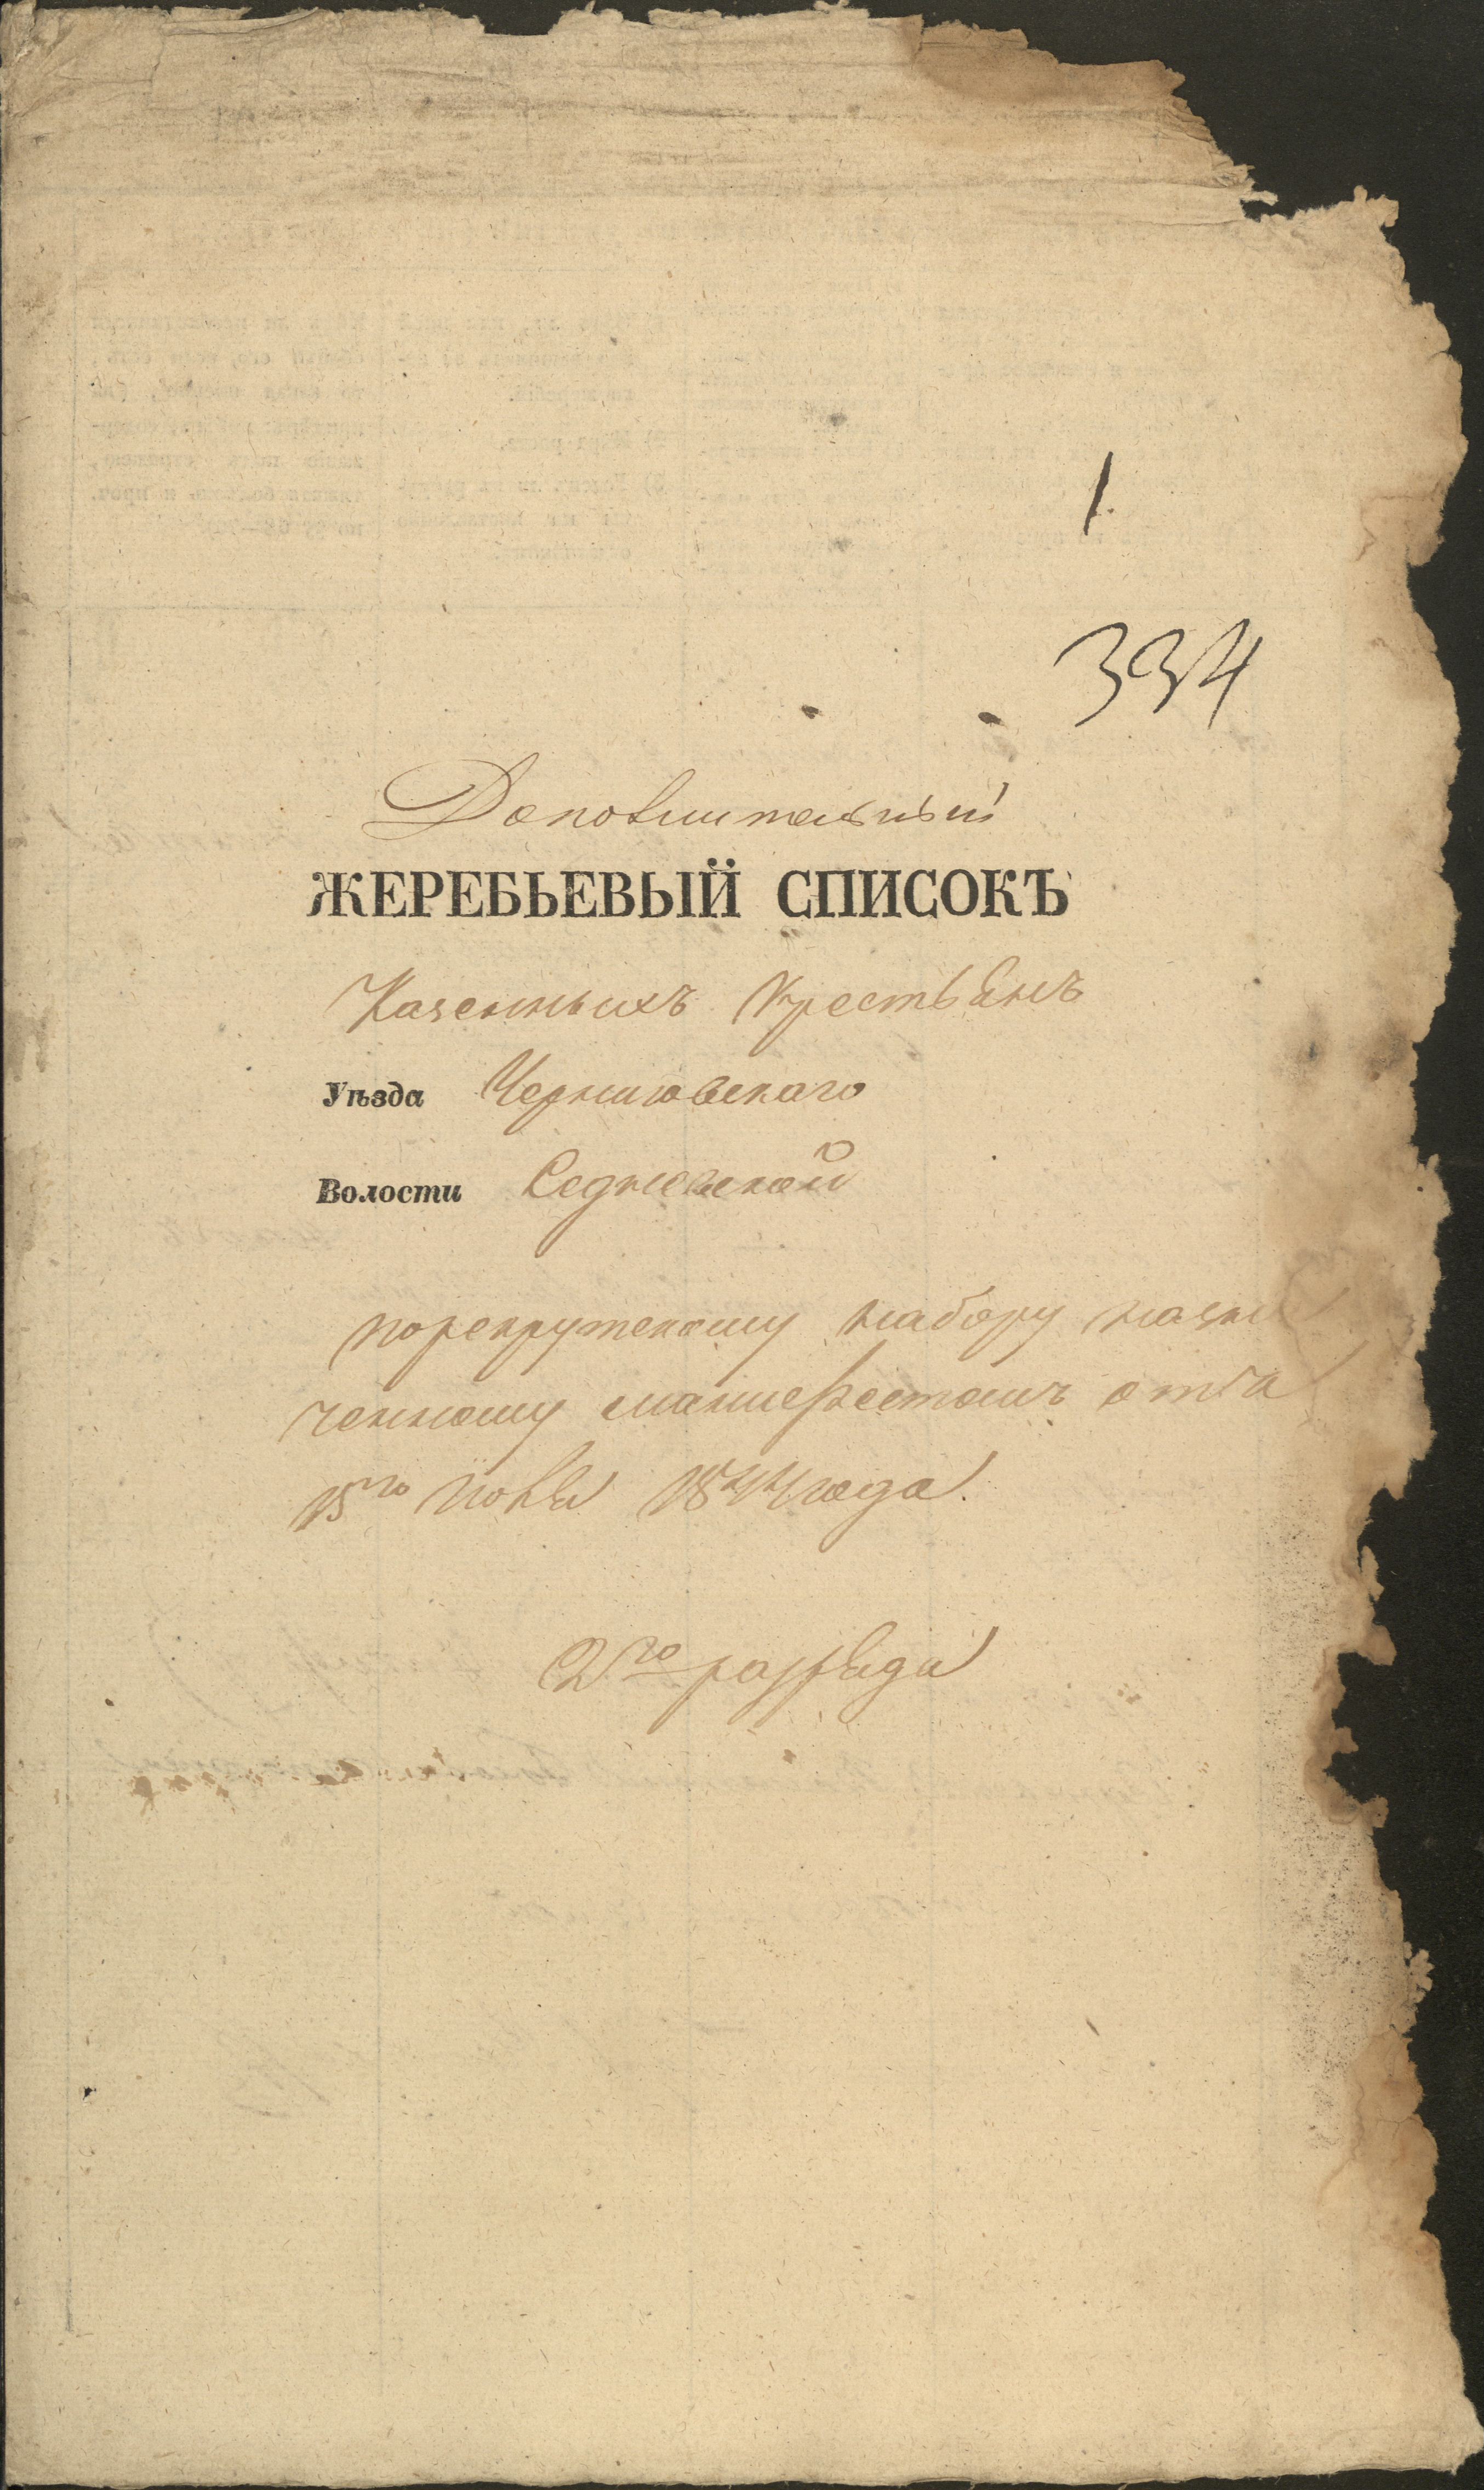 1.
334
Дополнительный
ЖЕРЕБЬЕВЫЙ СПИСОКЪ
Казенныхъ Крестьянъ
Уѣзда Черниговскаго
Волости Седневской
порекрутскому набору назна
ченному манифестомъ отъ
15го Іюля 1844 года.
2го разряда